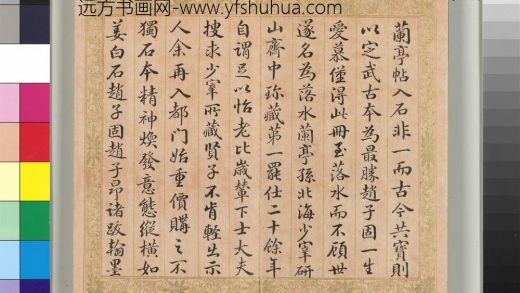 远方书画网-www.yfshuhua.com
蘭亭帖入石非一而古今共寶則
以定武古本為最勝趙子固一生
愛慕僅得此冊至落水而不顧世
遂名為落水蘭亭孫北海少宰研
山齋中珎藏第一罷仕二十餘年
自謂足以怡老比歲輦下士大夫
搜求少宰所藏賢子不肯輕出示
人余再入都門始重價購之不
獨石本精神煥發意態縱橫如
姜白石趙子固趙子昂諸跋翰墨